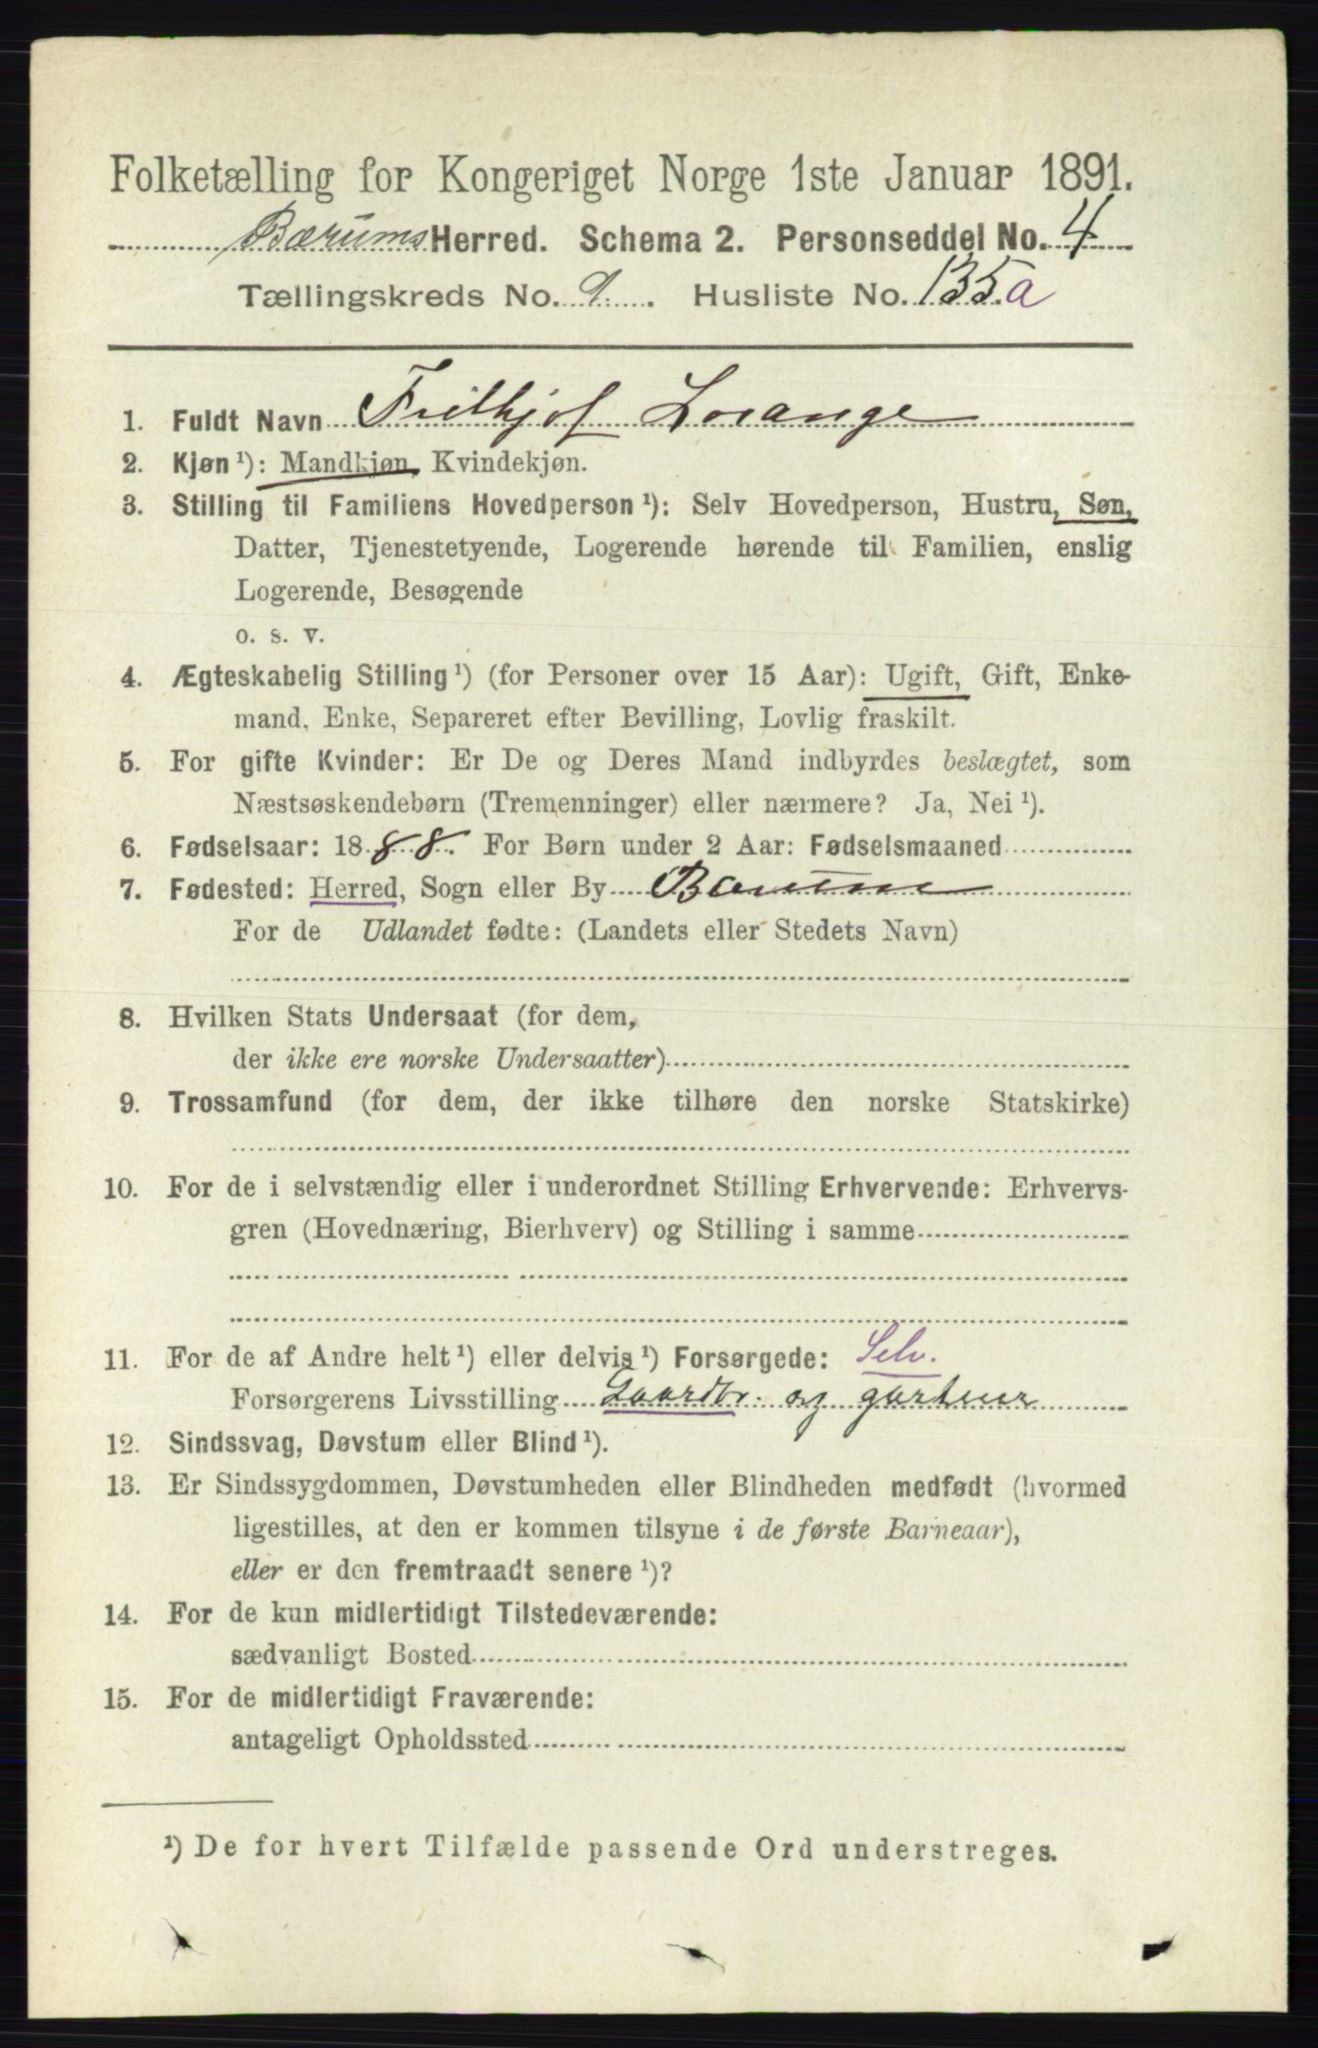 Folketælling for Kongeriget Norge 1ste Januar 1891.
Bærums Herred. Schema 2. Personseddel No. 4
Tællingskreds No. 9. Husliste No. 135a
1. Fuldt Navn Frithjof Lorange
2. Kjøn ¹): Mandkjøn, Kvindekjøn.
3. Stilling til Familiens Hovedperson ¹): Selv Hovedperson, Hustru, Søn,
Datter, Tjenestetyende, Logerende hørende til Familien, enslig
Logerende, Besøgende
o. s. v.
4. Ægteskabelig Stilling ¹) (for Personer over 15 Aar): Ugift, Gift, Enke-
mand, Enke, Separeret efter Bevilling, Lovlig fraskilt.
5. For gifte Kvinder: Er De og Deres Mand indbyrdes beslægtet, som
Næstsøskendebørn (Tremenninger) eller nærmere? Ja, Nei ¹).
6. Fødselsaar: 1888. For Børn under 2 Aar: Fødselsmaaned
7. Fødested: Herred, Sogn eller By Bærum
For de Udlandet fødte: (Landets eller Stedets Navn)
8. Hvilken Stats Undersaat (for dem,
der ikke ere norske Undersaatter)
9. Trossamfund (for dem, der ikke tilhøre den norske Statskirke)
10. For de i selvstændig eller i underordnet Stilling Erhvervende: Erhvervs-
gren (Hovednæring, Bierhverv) og Stilling i samme
11. For de af Andre helt ¹) eller delvis ¹) Forsørgede: Selv.
Forsørgerens Livsstilling Gaardbr. og gartner
12. Sindssvag, Døvstum eller Blind ¹).
13. Er Sindssygdommen, Døvstumheden eller Blindheden medfødt (hvormed
ligestilles, at den er kommen tilsyne i de første Barneaar),
eller er den fremtraadt senere ¹)?
14. For de kun midlertidigt Tilstedeværende:
sædvanligt Bosted
15. For de midlertidigt Fraværende:
antageligt Opholdssted
¹) De for hvert Tilfælde passende Ord understreges.